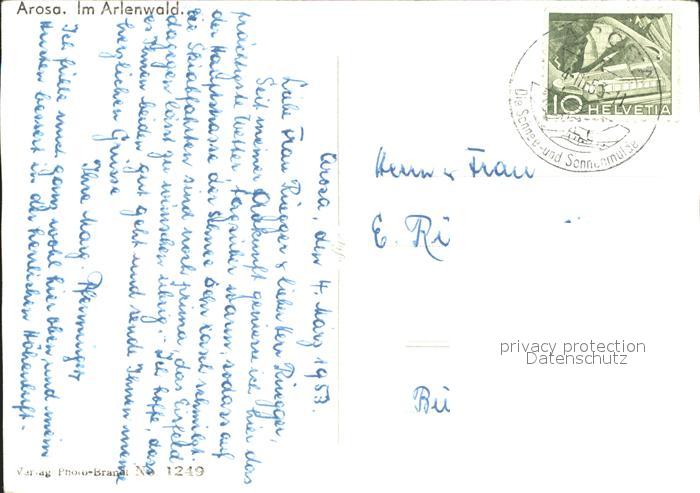 Arosa. Im Arlenwald.
Arosa, den 4. März 1953.
Liebe Frau Rüegger & lieber Herr Rüegger,
Seit meiner Ankunft geniesse ich hier das
prächtigste Wetter, tagsüber warm, sodass auf
der Hauptstrasse der Schnee sehr rasch schmilzt.
Die Skiabfahrten sind noch prima, das Eisfeld
dagegen lässt zu wünschen übrig. - Ich hoffe, dass
es Ihnen beiden gut geht und sende Ihnen meine
herzlichen Grüsse
Ihre Marg. Pfenninger
Ich fühle mich ganz wohl hier oben, und mein
Husten bessert in der herrlichen Höhenluft.
Verlag Photo-Brandt No 1249
AROSA
4.III.53
Die Sonnen- und Schneemulde
10 HELVETIA
Herrn & Frau
E. Rü
Bü
privacy protection
Datenschutz